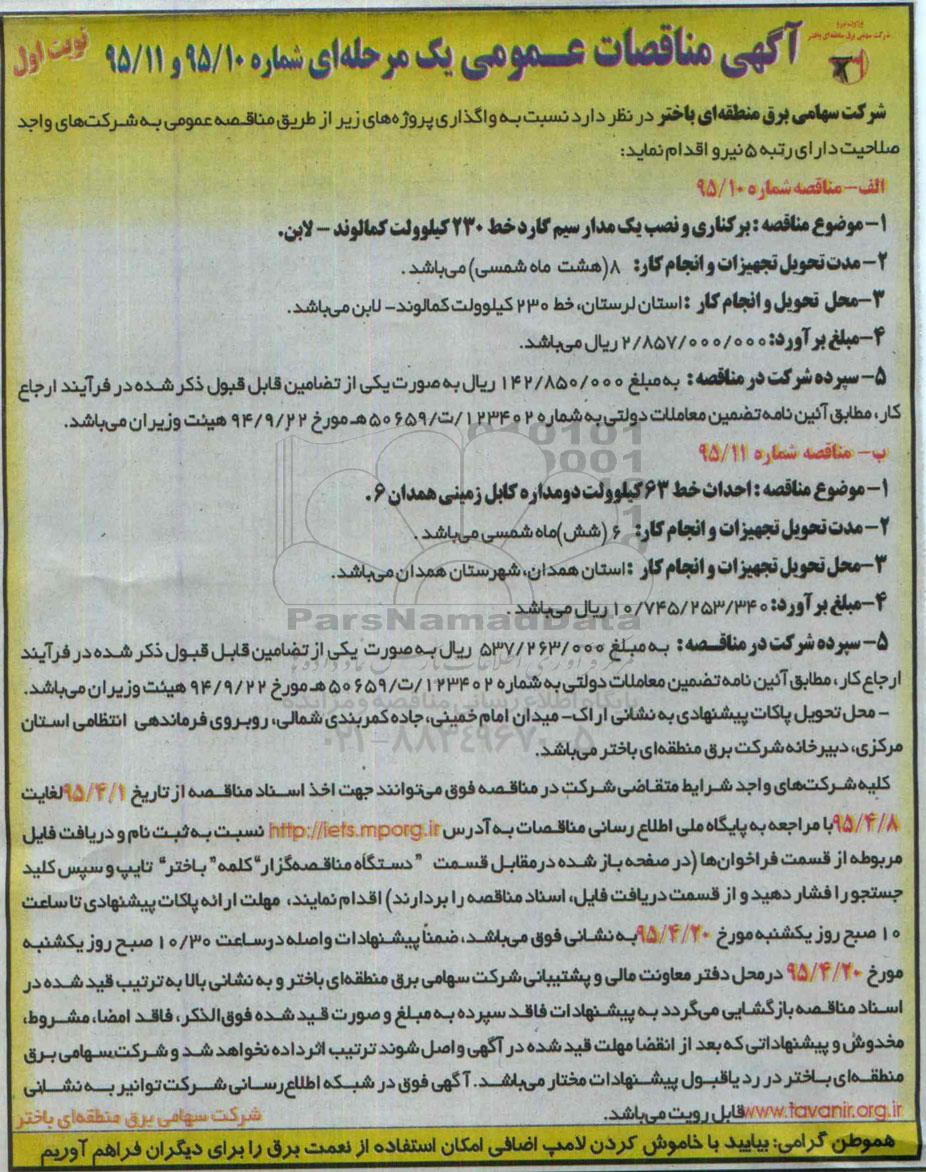 وزارت نیرو
شرکت سهامی برق منطقه‌ای باختر
آگهی مناقصات عمومی یک مرحله‌ای شماره ۹۵/۱۰ و ۹۵/۱۱
نوبت اول
شرکت سهامی برق منطقه‌ای باختر در نظر دارد نسبت به واگذاری پروژه‌های زیر از طریق مناقصه عمومی به شرکت‌های واجد
صلاحیت دارای رتبه ۵ نیرو اقدام نماید:
الف- مناقصه شماره ۹۵/۱۰
۱- موضوع مناقصه : برکناری و نصب یک مدار سیم گارد خط ۲۳۰ کیلوولت کمالوند - لابن.
۲- مدت تحویل تجهیزات و انجام کار: ۸ (هشت ماه شمسی) می‌باشد .
۳- محل تحویل و انجام کار : استان لرستان، خط ۲۳۰ کیلوولت کمالوند- لابن می‌باشد.
۴- مبلغ برآورد: ۲/۸۵۷/۰۰۰/۰۰۰ ریال می‌باشد.
۵- سپرده شرکت در مناقصه : به مبلغ ۱۴۲/۸۵۰/۰۰۰ ریال به صورت یکی از تضامین قابل قبول ذکر شده در فرآیند ارجاع
کار، مطابق آئین نامه تضمین معاملات دولتی به شماره ۱۲۳۴۰۲/ت/۵۰۶۵۹ هـ مورخ ۹۴/۹/۲۲ هیئت وزیران می‌باشد.
ب- مناقصه شماره ۹۵/۱۱
۱- موضوع مناقصه : احداث خط ۶۳ کیلوولت دومداره کابل زمینی همدان ۶ .
۲- مدت تحویل تجهیزات و انجام کار: ۶ (شش) ماه شمسی می‌باشد .
۳- محل تحویل تجهیزات و انجام کار : استان همدان، شهرستان همدان می‌باشد.
۴- مبلغ برآورد: ۱۰/۷۴۵/۲۵۳/۳۴۰ ریال می‌باشد .
ParsNamadData
۵- سپرده شرکت در مناقصه : به مبلغ ۵۳۷/۲۶۳/۰۰۰ ریال به صورت یکی از تضامین قابل قبول ذکر شده در فرآیند
ارجاع کار، مطابق آئین نامه تضمین معاملات دولتی به شماره ۱۲۳۴۰۲/ت/۵۰۶۵۹ هـ مورخ ۹۴/۹/۲۲ هیئت وزیران می‌باشد.
- محل تحویل پاکات پیشنهادی به نشانی اراک- میدان امام خمینی، جاده کمربندی شمالی، روبروی فرماندهی انتظامی استان
مرکزی، دبیرخانه شرکت برق منطقه‌ای باختر می‌باشد.
۰۲۱-۸۸۳۴۹۶۷۰-۵
کلیه شرکت‌های واجد شرایط متقاضی شرکت در مناقصه فوق می‌توانند جهت اخذ اسناد مناقصه از تاریخ ۹۵/۴/۱ لغایت
۹۵/۴/۸ با مراجعه به پایگاه ملی اطلاع رسانی مناقصات به آدرس http://iets.mporg.ir نسبت به ثبت نام و دریافت فایل
مربوطه از قسمت فراخوان‌ها (در صفحه باز شده در مقابل قسمت "دستگاه مناقصه‌گزار" کلمه "باختر" تایپ و سپس کلید
جستجو را فشار دهید و از قسمت دریافت فایل، اسناد مناقصه را بردارند) اقدام نمایند، مهلت ارائه پاکات پیشنهادی تا ساعت
۱۰ صبح روز یکشنبه مورخ ۹۵/۴/۲۰ به نشانی فوق می‌باشد، ضمناً پیشنهادات واصله در ساعت ۱۰/۳۰ صبح روز یکشنبه
مورخ ۹۵/۴/۲۰ در محل دفتر معاونت مالی و پشتیبانی شرکت سهامی برق منطقه‌ای باختر و به نشانی بالا به ترتیب قید شده در
اسناد مناقصه بازگشایی می‌گردد به پیشنهادات فاقد سپرده به مبلغ و صورت قید شده فوق‌الذکر، فاقد امضا، مشروط،
مخدوش و پیشنهاداتی که بعد از انقضا مهلت قید شده در آگهی واصل شوند ترتیب اثر داده نخواهد شد و شرکت سهامی برق
منطقه‌ای باختر در رد یا قبول پیشنهادات مختار می‌باشد. آگهی فوق در شبکه اطلاع رسانی شرکت توانیر به نشانی
www.tavanir.org.ir قابل رویت می‌باشد.
شرکت سهامی برق منطقه‌ای باختر
هموطن گرامی: بیایید با خاموش کردن لامپ اضافی امکان استفاده از نعمت برق را برای دیگران فراهم آوریم